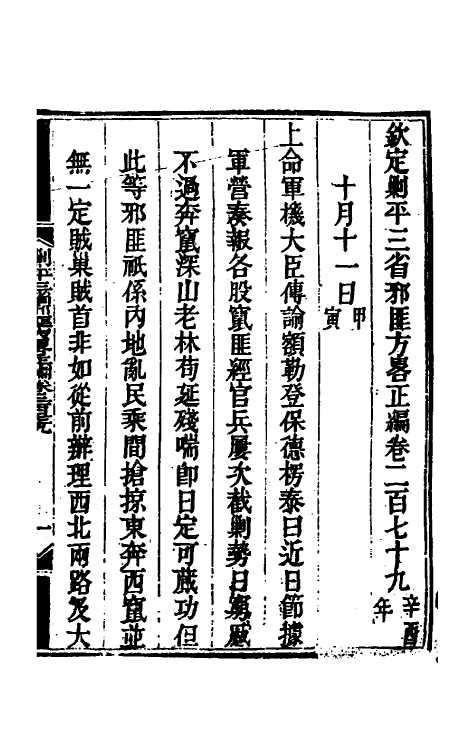 欽定剿平三省邪匪方畧正編卷二百七十九辛酉年
十月十一日甲寅
上命軍機大臣傳諭額勒登保德楞泰曰近日節據
軍營奏報各股竄匪經官兵屢次截剿勢日窮蹙
不過奔竄深山老林苟延殘喘卽日定可蕆功但
此等邪匪祇係內地亂民乘間搶掠東奔西竄並
無一定賊巢賊首非如從前辦理西北兩路及大